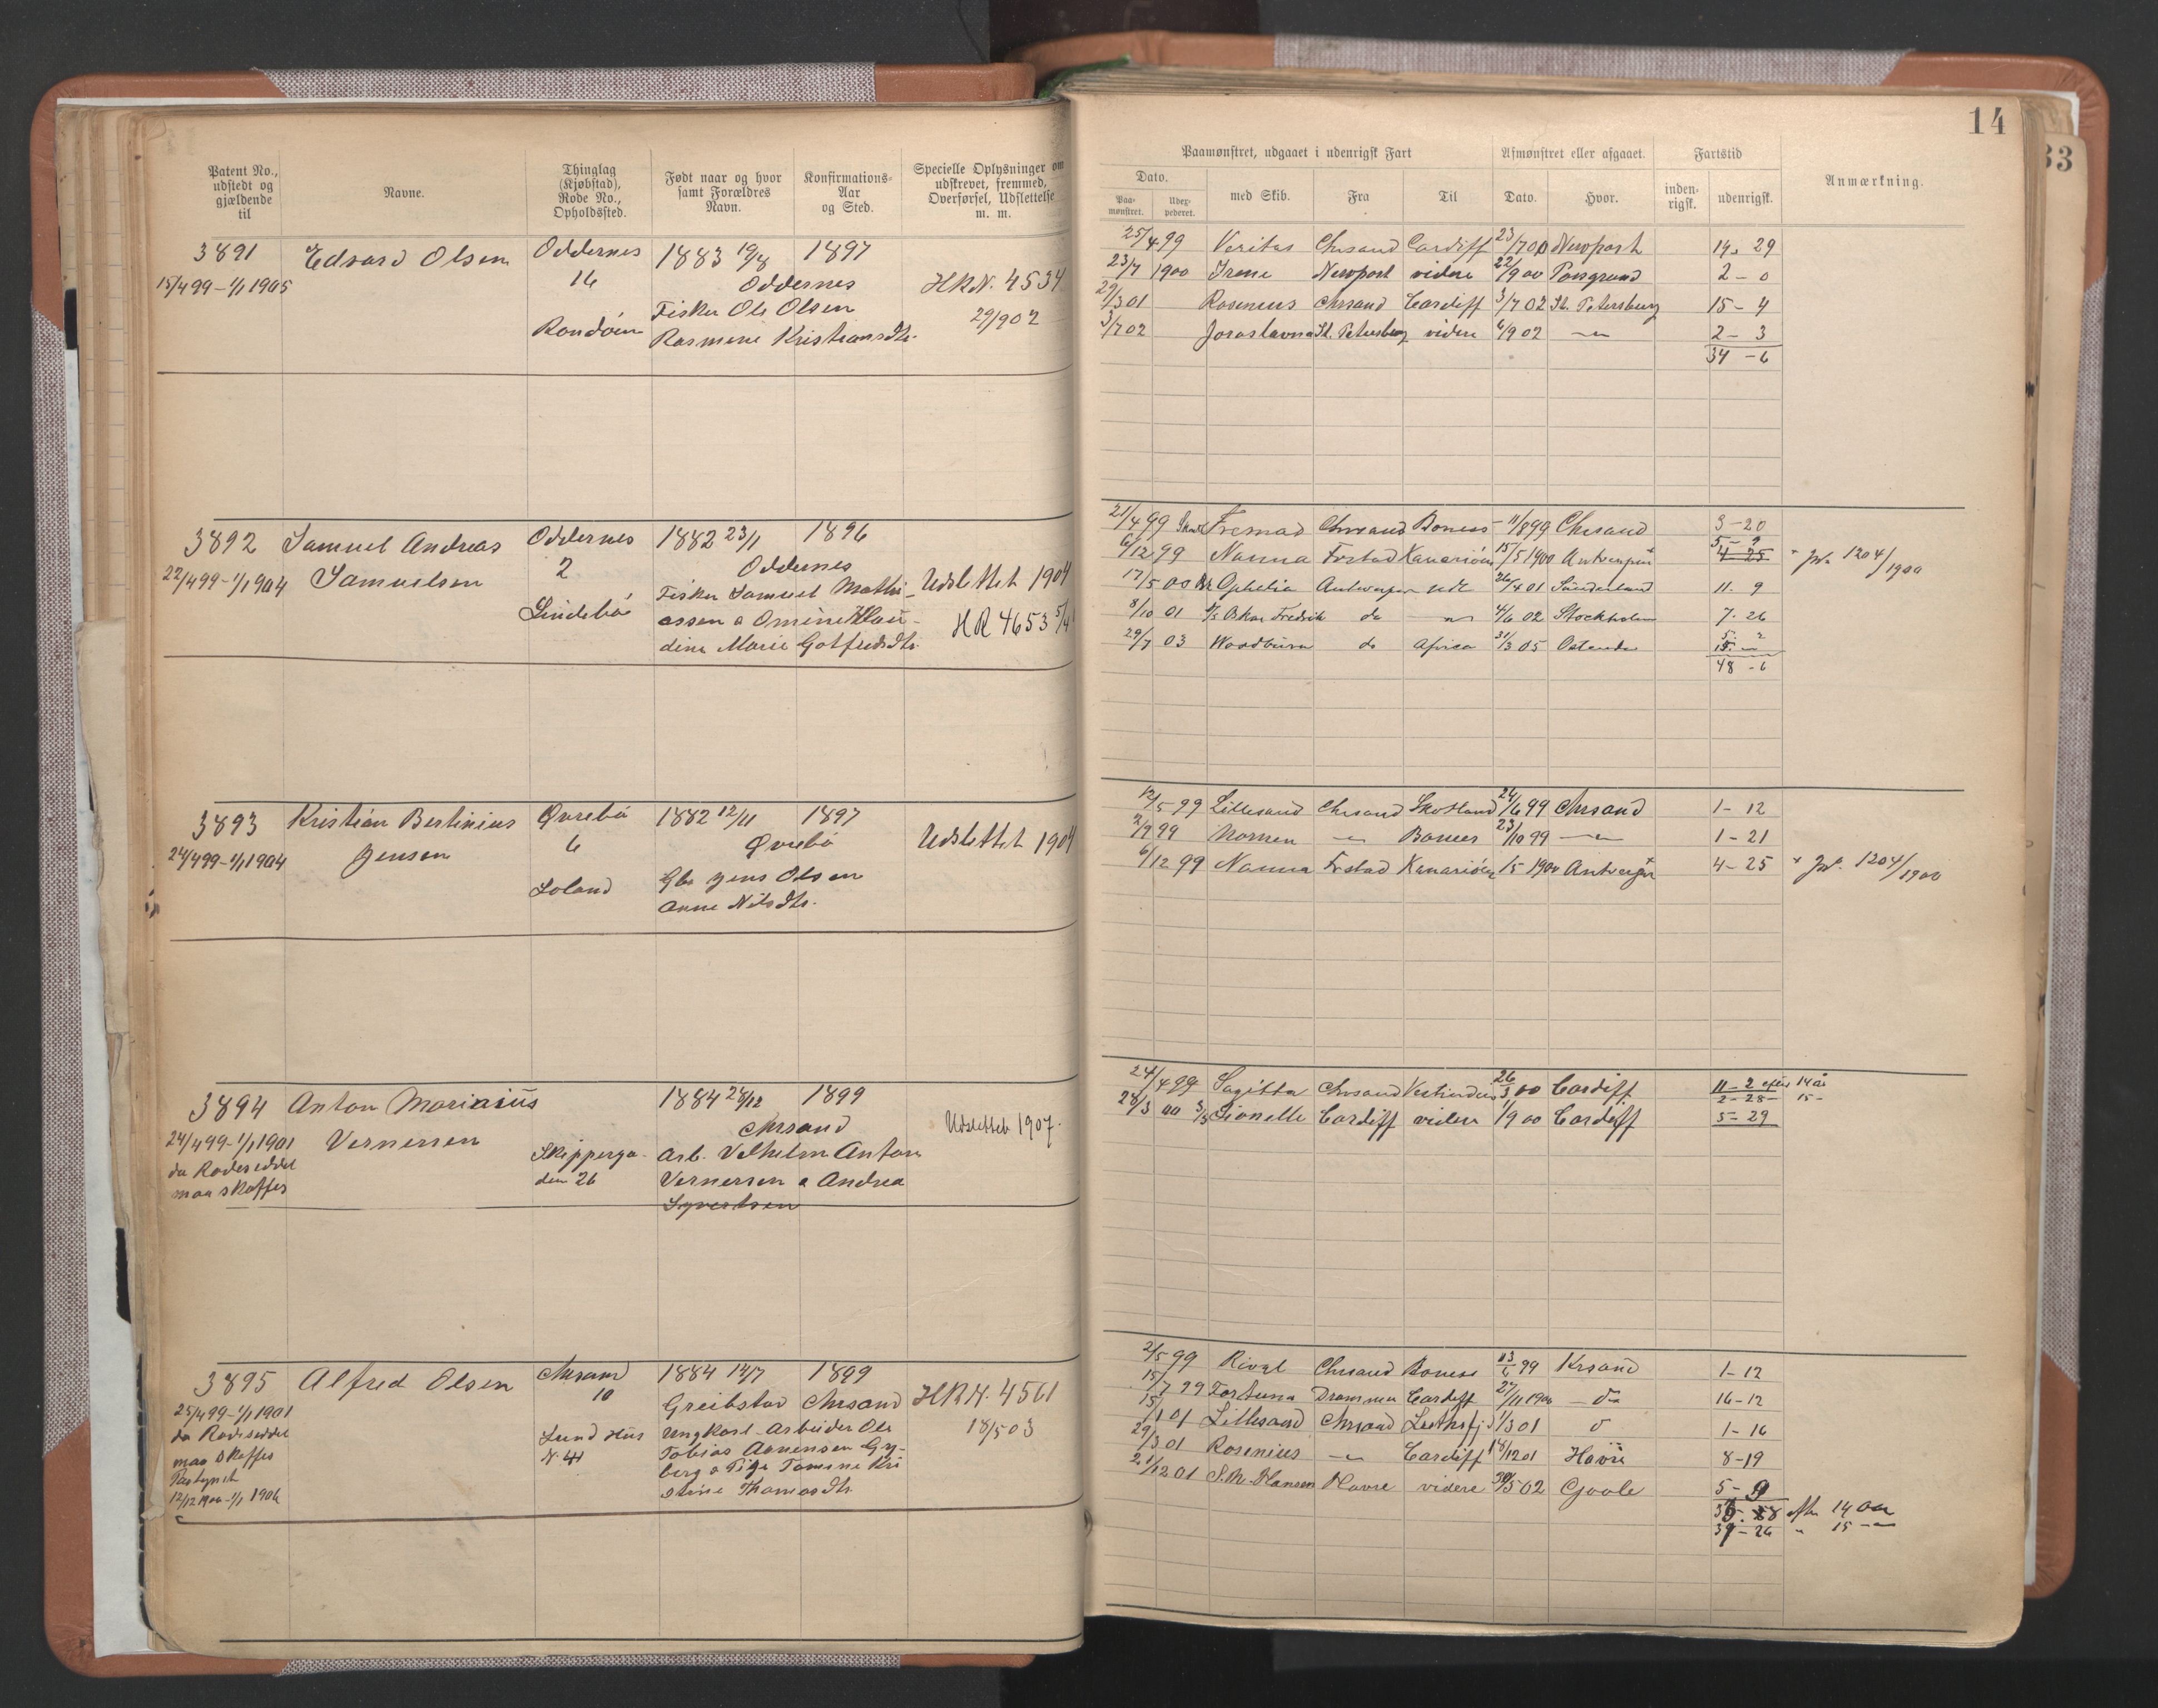 14
33
Patent No., udstedt og gjældende til
Navne.
Thinglag (Kjøbstad), Rode No., Opholdssted.
Født naar og hvor samt Forældres Navn.
Konfirmations-Aar og Sted.
Specielle Oplysninger om udskrevet, fremmed, Overførsel, Udslettelse m. m.
Paamønstret, udgaaet i udenrigsk Fart
Afmønstret eller afgaaet.
Fartstid
Anmærkning.
Dato.
Paa-mønstret.
Udex-pederet.
med Skib.
Fra
Til
Dato.
Hvor.
inden-rigsk.
udenrigsk.
3891 Edvard Olsen Oddernes 1883 19/8 1897
15/4 99 - 1/1 1905 16 Oddernes HRN. 4534
Fisker Ole Olsen 29/9 02
Randøen Rasmine Kristiansdtr.
25/4 99 Veritas Chrsand Cardiff 23/7 00 Newport 14. 29
23/7 1900 Irene Newport videre 22/9 00 Porsgrund 2 - 0
29/3 01 Rosenius Chrsand Cardiff 3/7 02 St. Petersburg 15 - 4
3/7 02 Joroslavna St. Petersburg videre 6/9 02 — " — 2 - 3
34 - 6
3892 Samuel Andreas Oddernes 1882 23/1 1896
22/4 99 - 1/1 1904 Samuelsen 2 Oddernes Udslettet 1904
Fisker Samuel Mathi-
Lindebø assen & Omine Klau- HR 4653 5/4
dine Marie Gotfredsdtr.
21/4 99 Skonn Fremad Chrsand Boness 11/8 99 Chrsand 3 - 20
5 - 9
6/12 99 Nanna Frstad Kanariøen 15/5 1900 Antwerpen + 4 - 25 + Jrn. 1204/1900
17/5 00 Bk Ophelia Antwerpen ude 26/4 01 Sunderland 11. 9
8/10 01 S/s Oskar Fredrik do — " — 4/6 02 Stockholm 7. 26
5. 2
29/7 03 Woodburn do Africa 31/3 05 Ostende 15. "
48 - 6
3893 Kristian Bertinius Øvrebø 1882 12/11 1897
24/4 99 - 1/1 1904 Jensen 6 Øvrebø Udslettet 1904
Loland Gbr Jens Olsen
Anne Nilsdtr.
12/5 99 Lillesand Chrsand Skotland 24/6 99 Chrsand 1 - 12
2/9 99 Nornen — " — Boness 23/10 99 — " — 1 - 21
6/12 99 Nanna Frstad Kanariøen 15 1900 Antwerpen + 4 - 25 + Jrl. 1204/1900
3894 Anton Mariniüs 1884 28/12 1899
24/4 99 - 1/1 1901 Vernersen Chrsand Udslettet 1907.
da Rodeseddel Skipperga- Arb. Vilhelm Anton
maa skaffes den 26 Vernersen & Andrea
Syvertsen
24/4 99 Sagitta Chrsand Vestindien 26/3 00 Cardiff 11 - 2 efter 14 år
2 - 28 - 15 -
28/3 00 S/s Lionelle Cardiff videre 1/9 00 Cardiff 5 - 29
3895 Alfred Olsen Chrsand 1884 14/7 1899
25/4 99 - 1/1 1901 10 Greibstad Chrsand HRN. 4561
da Rodeseddel Lund Hus Ungkarl-Arbeider Ole 18/5 03
maa skaffes N. 44 Tobias Aanensen Gy-
berg & Pige Tomine Kri
12/12 1900 - 1/1 1906 stine Thomasdtr
2/5 99 Rival Chrsand Boness 13/6 99 Krsand 1 - 12
15/7 99 Fortuna Drammen Cardiff 27/11 1900 — do 16 - 12
15/1 01 Lillesand Chrsand 1/3 01 do 1 - 16
29/3 01 Rosenius — " — Cardiff 18/12 01 Havre 8 - 19
21/12 01 S. M. Hansen Havre videre 30/5 02 Goole 5 - 9
efter 14 aar
39 - 26 " 15 - "